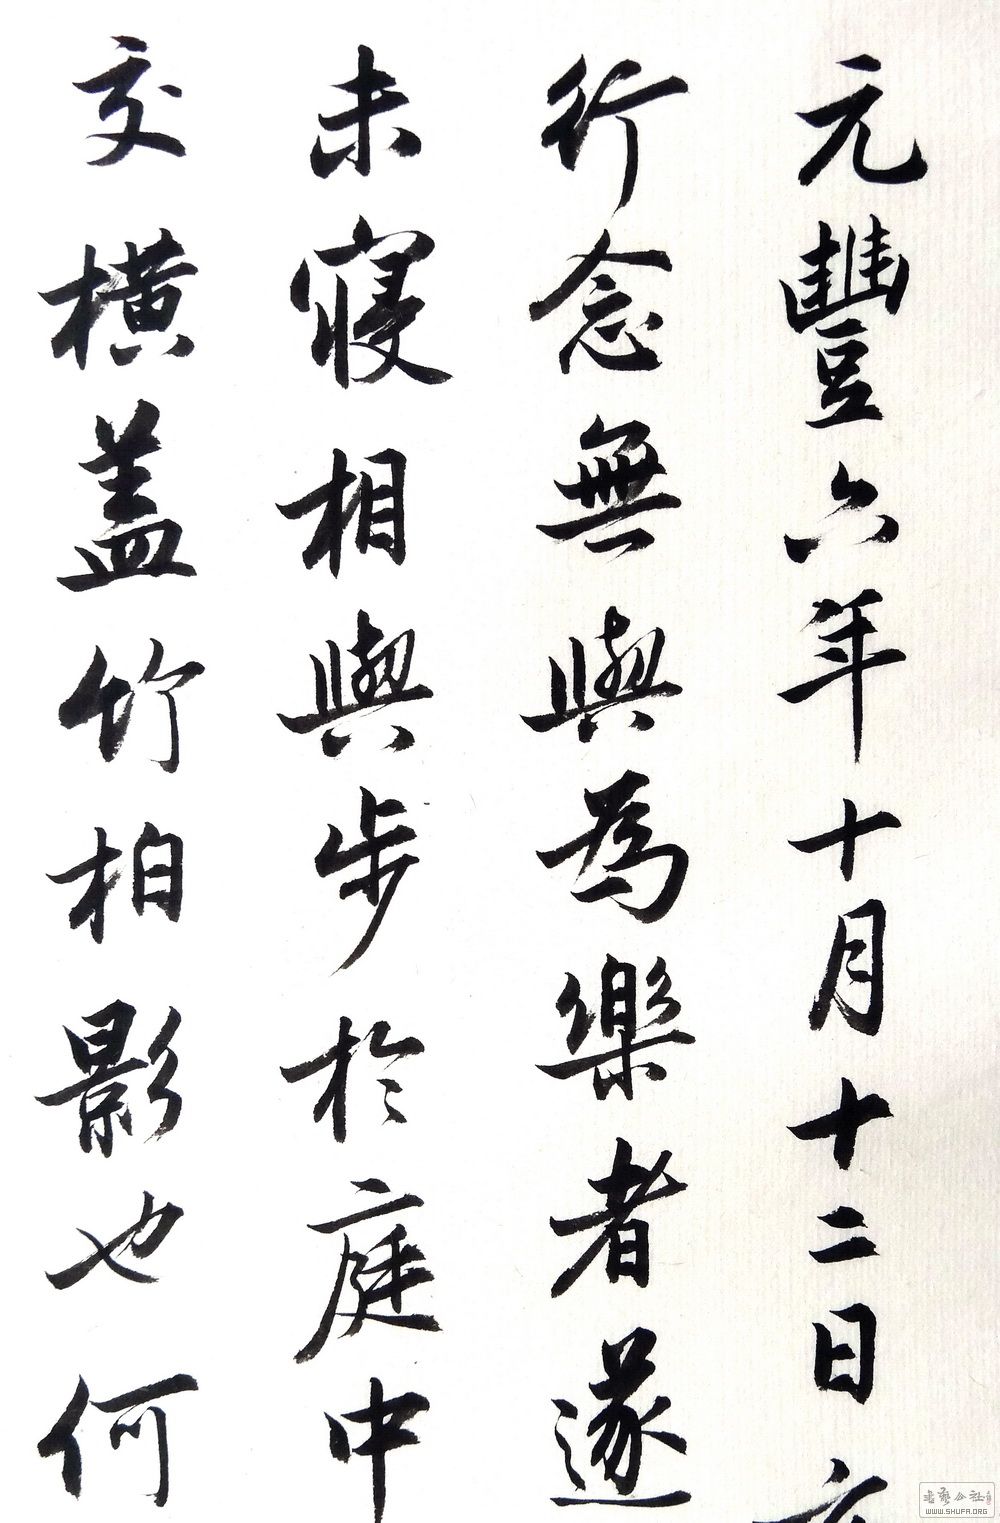 元豐六年十月十二日
行念無與為樂者遂
未寝相與步於庭中
交橫盖竹柏影也何
WWW.SHUFA.ORG